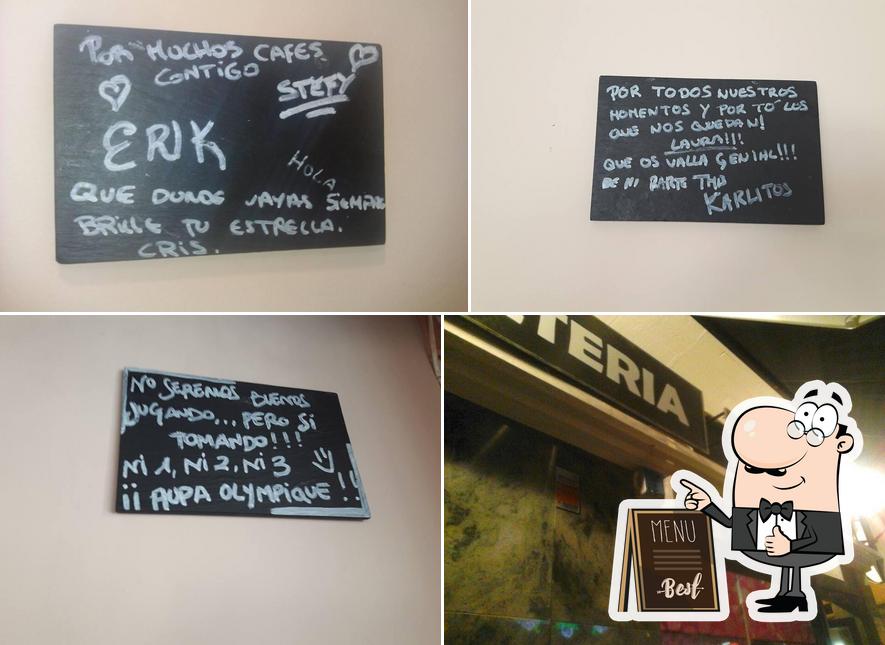 POR MUCHOS CAFES
CONTIGO
STEFY
ERIK
HOLA
QUE DONDE VAYAS SIEMPRE
BRILLE TU ESTRELLA.
CRIS.
POR TODOS NUESTROS
MOMENTOS Y POR TO' LOS
QUE NOS QUEDAN!
LAURA!!!
QUE OS VALLA GENIAL!!!
DE MI PARTE
KARLITOS
NO SEREMOS BUENOS
JUGANDO... PERO SI
TOMANDO!!!
Ni 1, Ni 2, Ni 3
¡¡ AUPA OLYMPIQUE !!
TERIA
MENU
Best